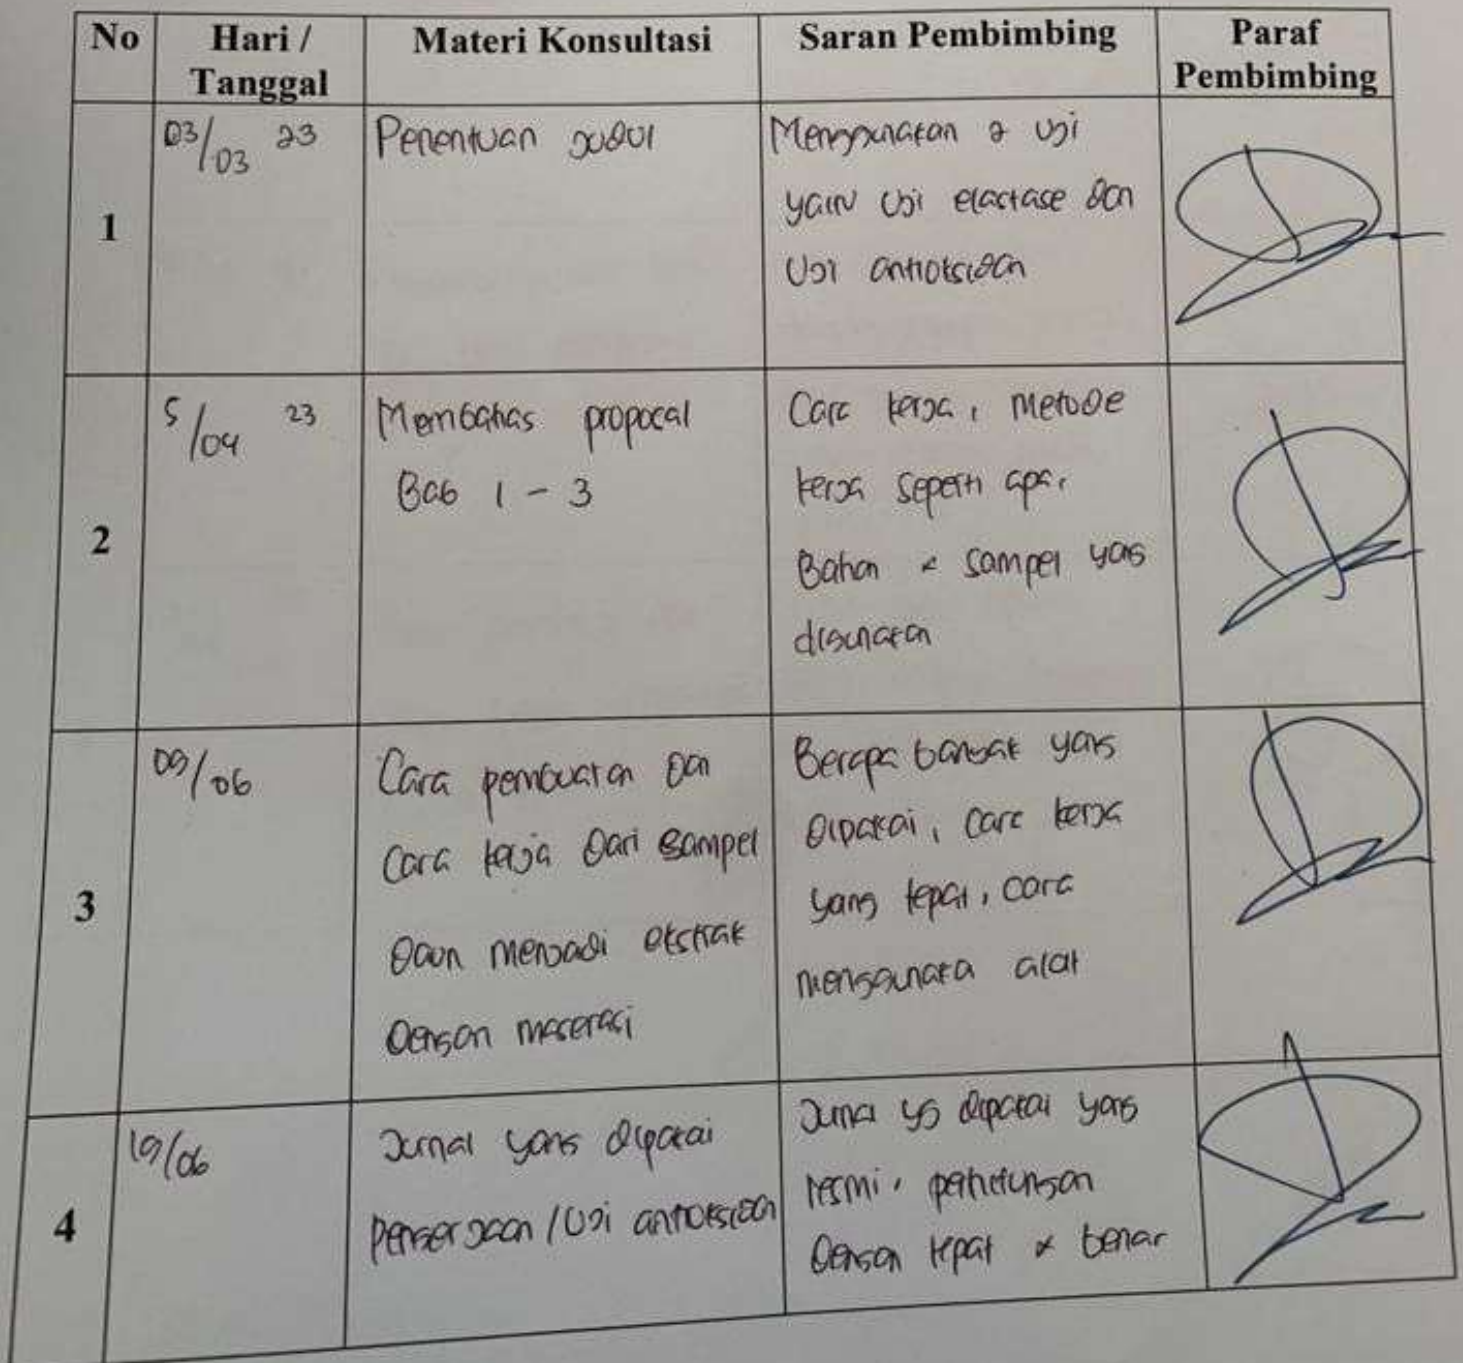 No
Hari /
Tanggal
Materi Konsultasi
Saran Pembimbing
Paraf
Pembimbing
1
03/03 23
Penentuan judul
Menggunakan 2 uji
yaitu uji elastase dan
Uji antioksidan
2
5/04 23
Membahas proposal
Bab 1 - 3
Cara kerja, metode
kerja seperti apa,
Bahan & sampel yang
digunakan
3
09/06
Cara pembuatan dan
Cara kerja dari sampel
daun menjadi ekstrak
dengan maserasi
Berapa banyak yang
dipakai, cara kerja
yang tepat, cara
menggunaka alat
4
19/06
Jurnal yang dipakai
Pengerjaan / Uji antioksidan
Jurnal yg dipakai yang
resmi, perhitungan
dengan tepat & benar